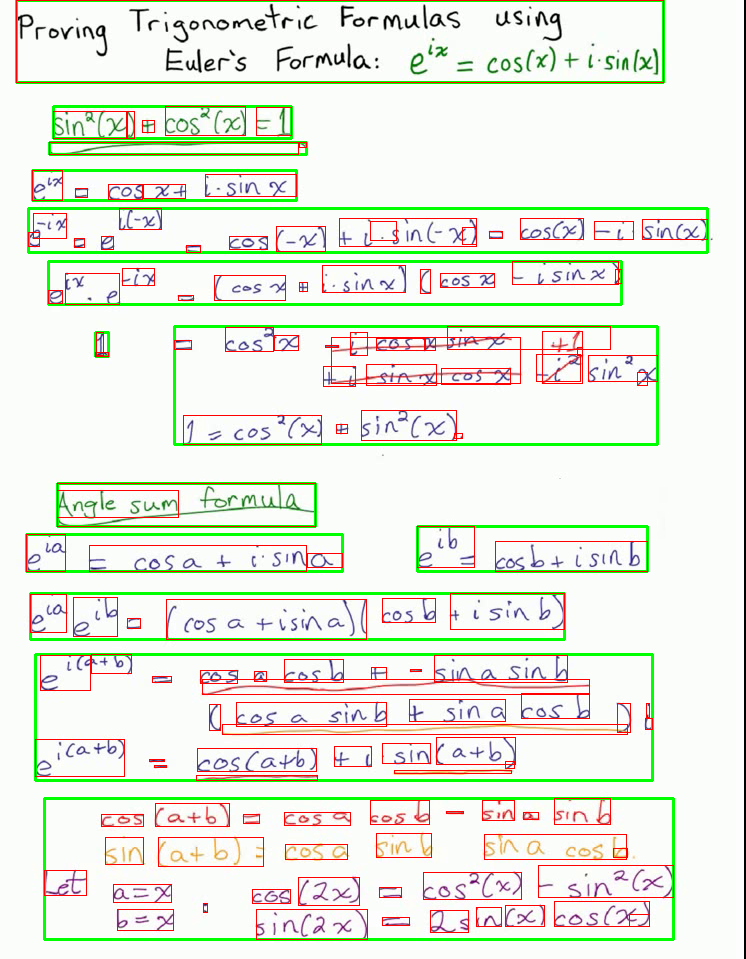 Proving Trigonometric Formulas using
Euler's Formula: e^{ix} = cos(x) + i·sin(x)
sin²(x) + cos²(x) = 1
e^{ix} = cos x + i·sin x
e^{-ix} = e^{i(-x)} = cos(-x) + i·sin(-x) = cos(x) - i sin(x).
e^{ix} · e^{-ix} = (cos x + i·sin x)(cos x - i sin x)
1 = cos²x - i cos x sin x +1
+ i sin x cos x - i² sin²x
1 = cos²(x) + sin²(x).
Angle sum formula
e^{ia} = cos a + i·sin a e^{ib} = cos b + i sin b
e^{ia} e^{ib} = (cos a + i sin a)(cos b + i sin b)
e^{i(a+b)} = cos a cos b + - sin a sin b
(cos a sin b + sin a cos b) i
e^{i(a+b)} = cos(a+b) + i sin(a+b)
cos(a+b) = cos a cos b - sin a sin b
sin(a+b) = cos a sin b sin a cos b.
Let a=x : cos(2x) = cos²(x) - sin²(x)
b=x sin(2x) = 2sin(x) cos(x)